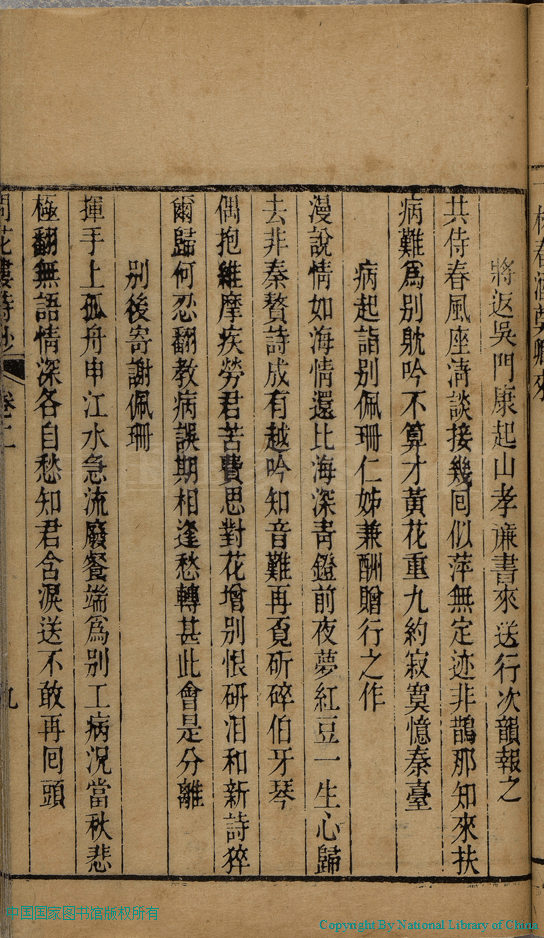 將返吳門康起山孝廉書來送行次韻報之
共侍春風座清談接幾回似萍無定迹非鵲那知來扶
病難爲别耽吟不算才黃花重九約寂寞憶秦臺
病起詣别佩珊仁姊兼酬贈行之作
漫說情如海情還比海深青鐙前夜夢紅豆一生心歸
去非秦贅詩成有越吟知音難再覓斫碎伯牙琴
偶抱維摩疾勞君苦費思對花增别恨研泪和新詩猝
爾歸何忍翻教病誤期相逢愁轉甚此會是分離
别後寄謝佩珊
揮手上孤舟申江水急流廢餐端爲别工病況當秋悲
極翻無語情深各自愁知君含淚送不敢再回頭
問花樓詩鈔 卷二 九
中国国家图书馆版权所有
Copyright By National Library of China